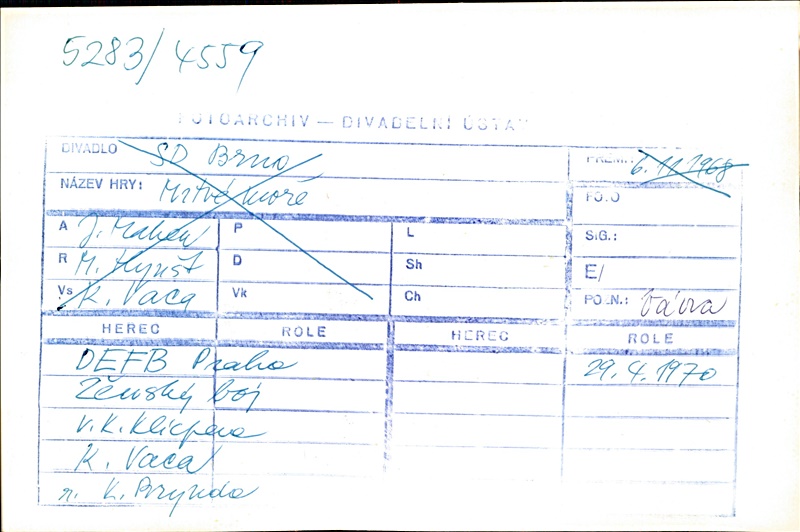 5283/4559
FOTOARCHIV — DIVADELNÍ ÚSTAV
DIVADLO SD Brno PREM.: 6. 11. 1968
NÁZEV HRY: Mrtvé moře FOTO
A J. Mahen P L SIG.:
R M. Hynšt D Sh E/
Vs K. Vaca Vk Ch POZN.:
HEREC ROLE HEREC ROLE
DEFB Praha 29. 4. 1970
Ženský boj
V. K. Klicpera
K. Vaca
r. K. Brynda